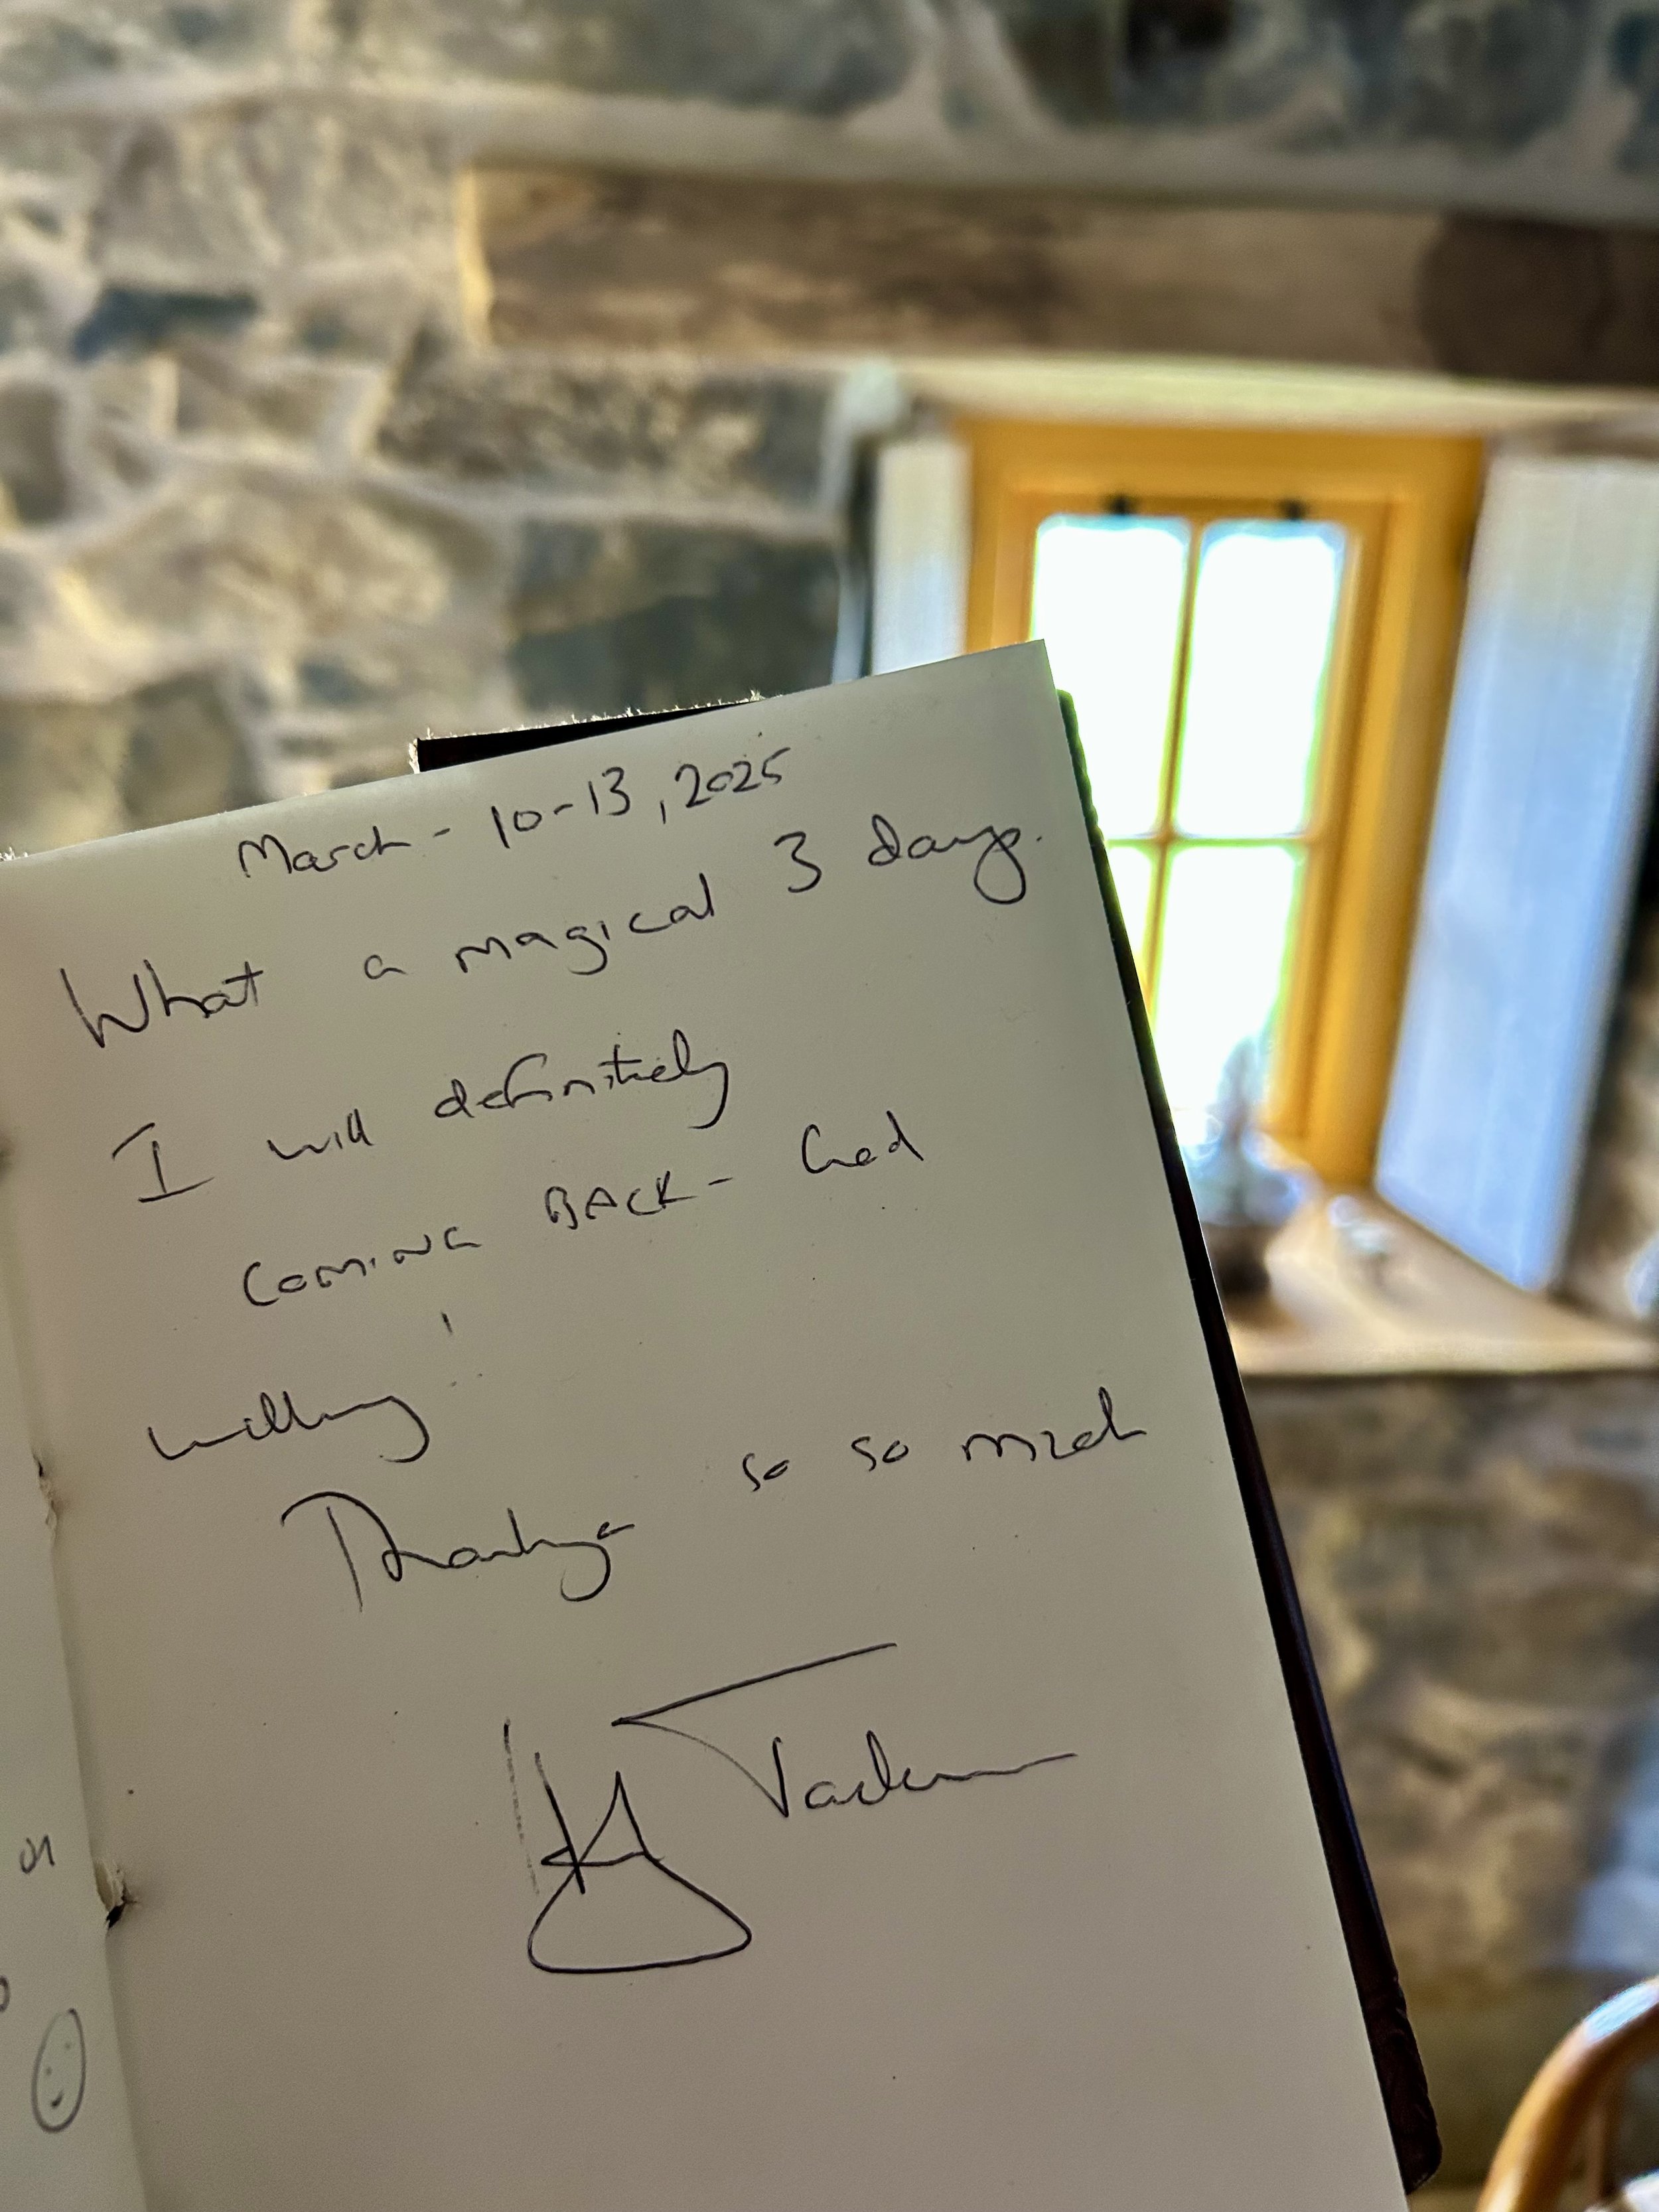 March - 10-13, 2025
What a magical 3 days.
I will definitely
COMING BACK - God
willing!
Thank you so so much
on